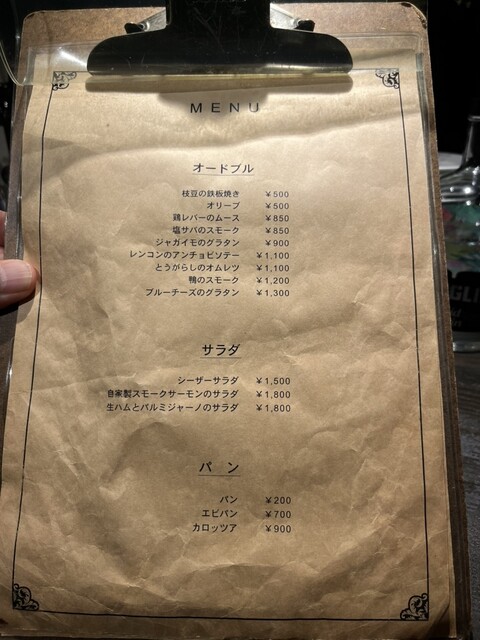 MENU
オードブル
枝豆の鉄板焼き ¥500
オリーブ ¥500
鶏レバーのムース ¥850
塩サバのスモーク ¥850
ジャガイモのグラタン ¥900
レンコンのアンチョビソテー ¥1,100
とうがらしのオムレツ ¥1,100
鴨のスモーク ¥1,200
ブルーチーズのグラタン ¥1,300
サラダ
シーザーサラダ ¥1,500
自家製スモークサーモンのサラダ ¥1,800
生ハムとパルミジャーノのサラダ ¥1,800
パン
パン ¥200
エビパン ¥700
カロッツア ¥900